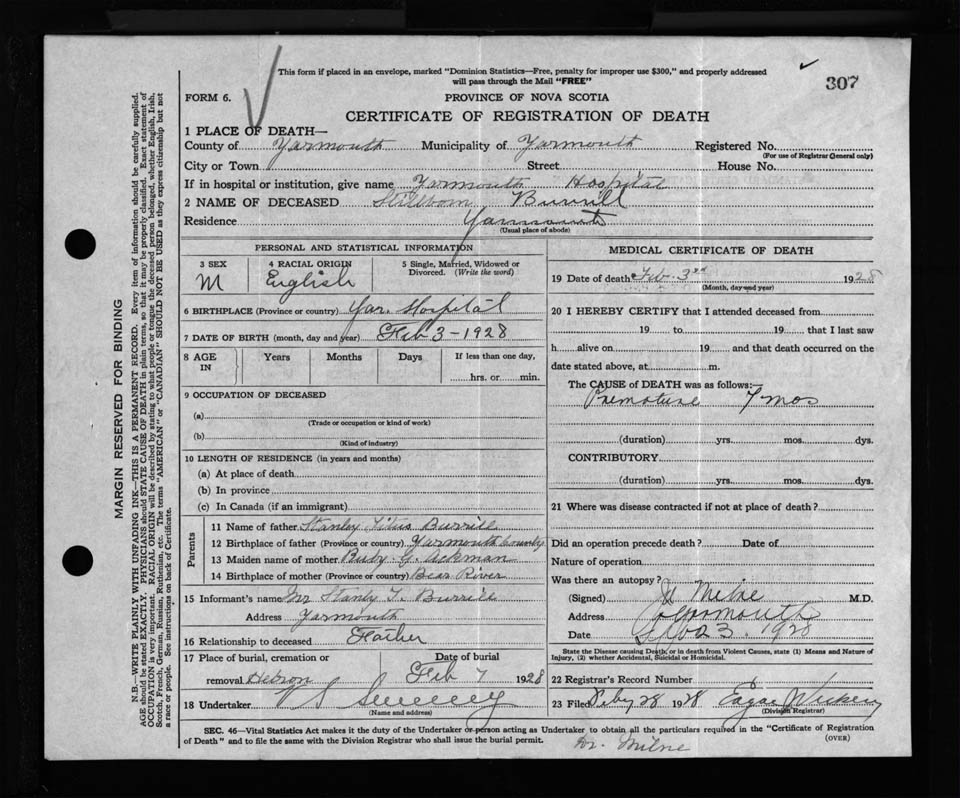 This form if placed in an envelope, marked "Dominion Statistics—Free, penalty for improper use $300," and properly addressed
will pass through the Mail "FREE"
307
FORM 6.
PROVINCE OF NOVA SCOTIA
CERTIFICATE OF REGISTRATION OF DEATH
1 PLACE OF DEATH—
County of Yarmouth Municipality of Yarmouth Registered No.
(For use of Registrar General only)
City or Town Street House No.
If in hospital or institution, give name Yarmouth Hospital
2 NAME OF DECEASED Stillborn Burrill
Residence Yarmouth
(Usual place of abode)
PERSONAL AND STATISTICAL INFORMATION
3 SEX 4 RACIAL ORIGIN 5 Single, Married, Widowed or
Divorced. (Write the word)
M English
6 BIRTHPLACE (Province or country) Yar. Hospital
7 DATE OF BIRTH (month, day and year) Feb 3 - 1928
8 AGE IN Years Months Days If less than one day,
hrs. or min.
9 OCCUPATION OF DECEASED
(a)
(Trade or occupation or kind of work)
(b)
(Kind of industry)
10 LENGTH OF RESIDENCE (in years and months)
(a) At place of death
(b) In province
(c) In Canada (if an immigrant)
Parents
11 Name of father Stanley Titus Burrill
12 Birthplace of father (Province or country) Yarmouth County
13 Maiden name of mother Ruby G. Ackman
14 Birthplace of mother (Province or country) Bear River
15 Informant's name Mr Stanly T. Burrill
Address Yarmouth
16 Relationship to deceased Father
17 Place of burial, cremation or Date of burial
removal Hebron Feb 7 1928
18 Undertaker V S Sweeney
(Name and address)
MEDICAL CERTIFICATE OF DEATH
19 Date of death Feb. 3rd 1928
(Month, day and year)
20 I HEREBY CERTIFY that I attended deceased from
19 to 19 that I last saw
h alive on 19 and that death occurred on the
date stated above, at m.
The CAUSE of DEATH was as follows:—
Premature 7 mos
(duration) yrs. mos. dys.
CONTRIBUTORY
(duration) yrs. mos. dys.
21 Where was disease contracted if not at place of death?
Did an operation precede death? Date of
Nature of operation
Was there an autopsy?
(Signed) Milne M.D.
Address Yarmouth
Date 23. 1928
State the Disease causing Death, or in death from Violent Causes, state (1) Means and Nature of
Injury, (2) whether Accidental, Suicidal or Homicidal.
22 Registrar's Record Number
23 Filed Feby 28 1928
(Division Registrar)
SEC. 46—Vital Statistics Act makes it the duty of the Undertaker or person acting as Undertaker to obtain all the particulars required in the "Certificate of Registration
of Death" and to file the same with the Division Registrar who shall issue the burial permit.
(OVER)
Dr. Milne
MARGIN RESERVED FOR BINDING
N.B.—WRITE PLAINLY WITH UNFADING INK—THIS IS A PERMANENT RECORD. Every item of information should be carefully supplied.
AGE should be stated EXACTLY. PHYSICIANS should STATE CAUSE OF DEATH in plain terms, so that it may be properly classified. Exact statement of
OCCUPATION is very important. RACIAL ORIGIN will be described by stating to what people or tongue the deceased person belonged, whether English, Irish,
Scotch, French, German, Russian, Ruthenian, etc. The terms "AMERICAN" or "CANADIAN" SHOULD NOT BE USED as they express citizenship but not
a race or people. See instructions on back of Certificate.